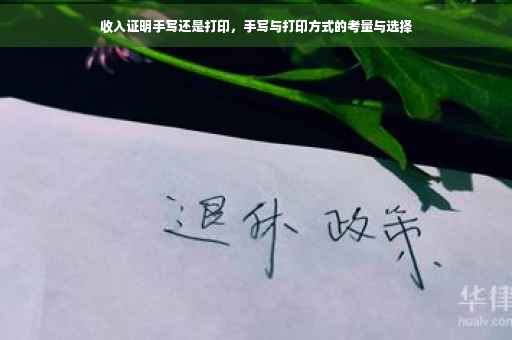 收入证明手写还是打印，手写与打印方式的考量与选择
退休 政策
华律
hualv.com